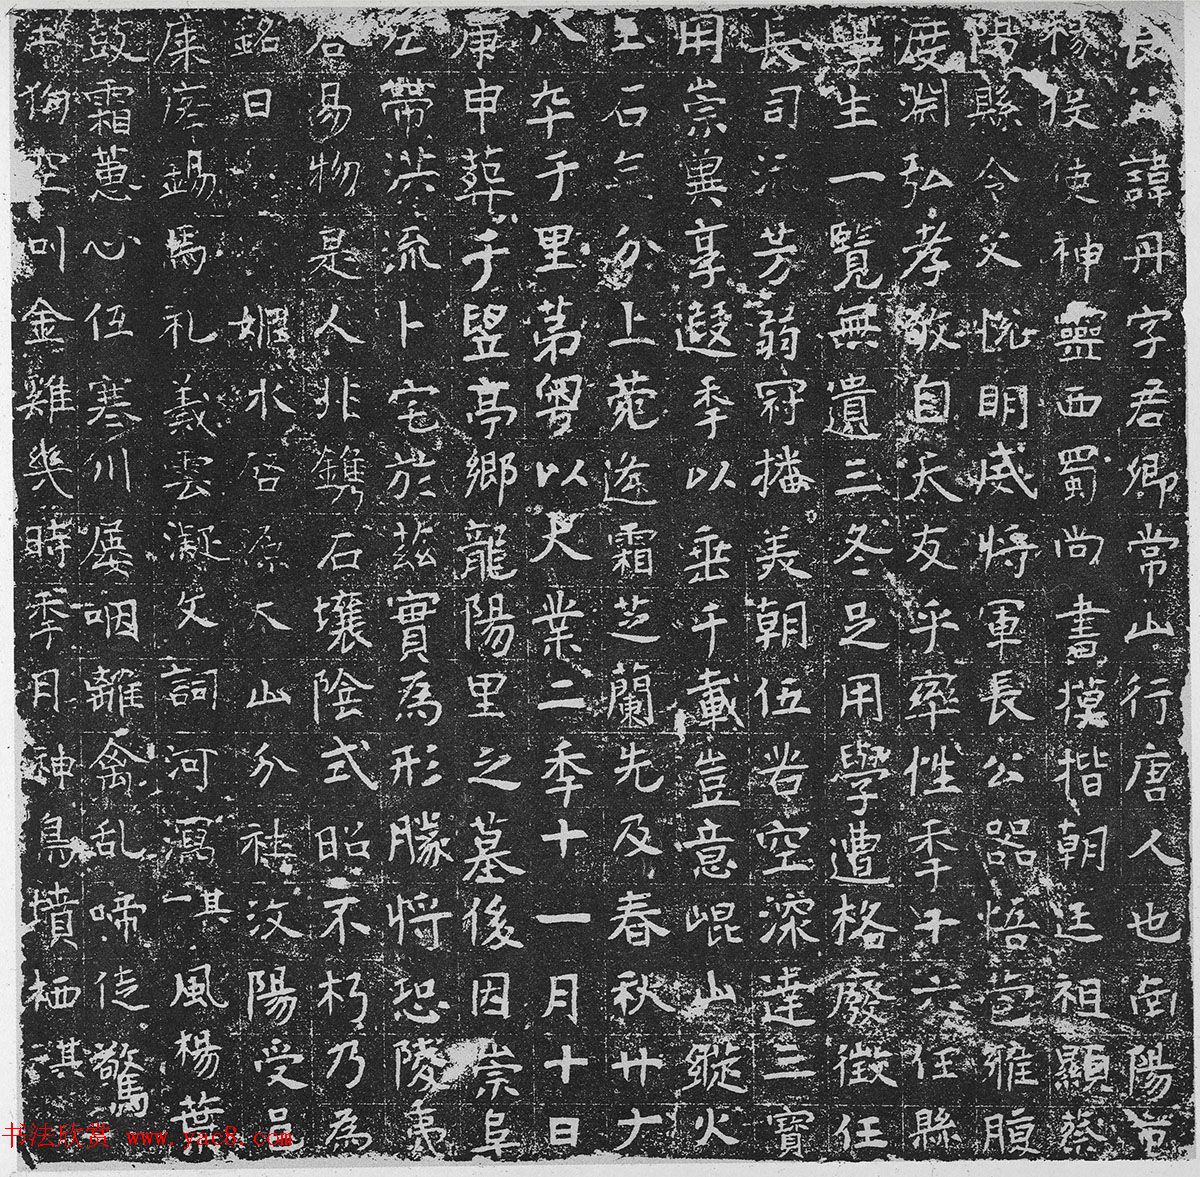 諱丹字君卿常山行唐人也陽
楊役使神靈西蜀尚書摸楷朝廷祖顯蔡
陽縣令父悅明威將軍長公器悟苞雅腹
度淵弘孝敬自天友乎率性季十六任縣
學生一覽無遺三冬足用學遭格廢徵任
長司流芳弱冠播美朝伍咎空深達三寶
用崇冀享遐季以垂千載豈意崐山縱火
玉石無分上苑逢霜芝蘭先及春秋廿
八年于里第粵以大業二季十一月十日
庚申葬于豎亭鄉龍陽里之墓後因崇阜
左帶洪流卜宅於茲實為形勝將恐陵夷
谷易物是人非鐫石壤陰式昭不朽乃為
銘曰水啓源大山分祉汶陽受呂
廉庠錫馬礼義雲凝文詞河瀉其一風楊葉
鼓霜蕙心伍寒川屡咽離禽乱啼徒驚
空叫金雞幾時季月神鳥墳栖其
书法欣赏 www.yac8.com